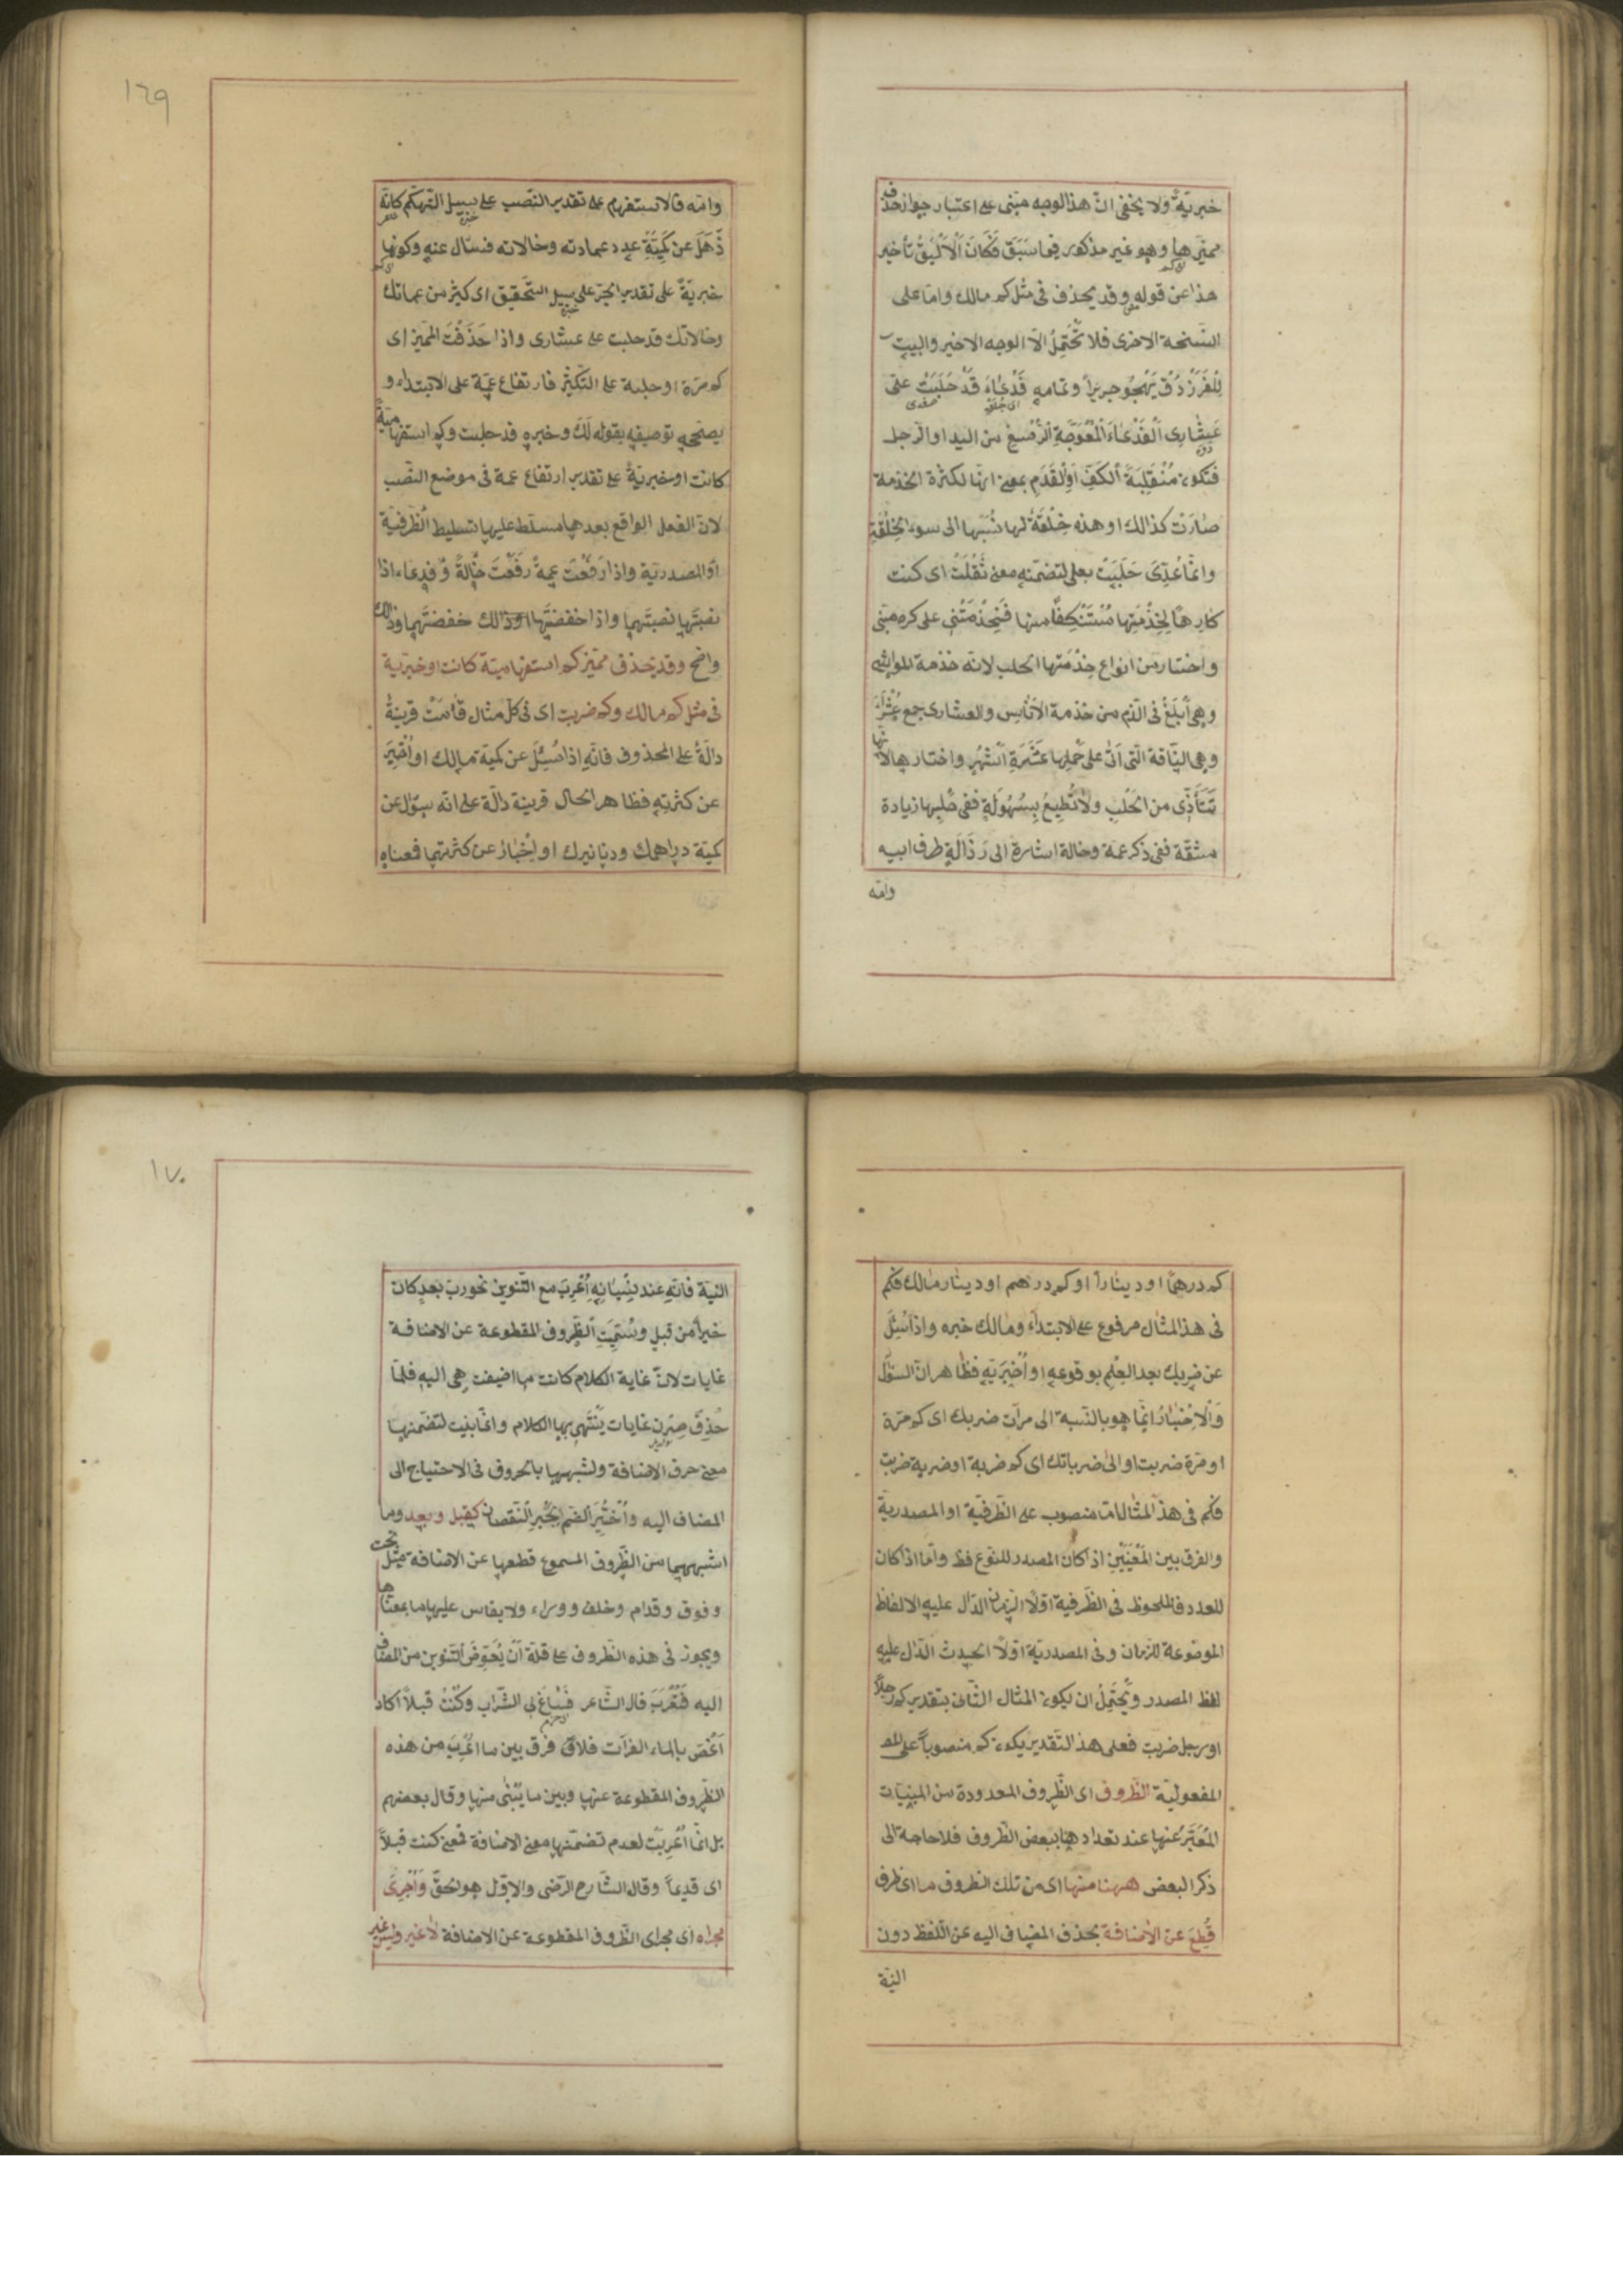 خبريّةً ولا يخفى انّ هذا الوجه مبنى على اعتبار جواز حذف
مميّزها وهو غير مذكور فيما سَبَقَ فَكَانَ اَلْاَلْيَقُ تأخير
هذا عن قوله وقد يحذف فى مثل كم مالك وامّا على
النّسخة الاخرى فلا تَحْتَمِلُ الّا الوجه الاخير والبيت
لِلْفَرَزْدَقْ يَهْجُو جريراً وتمامه فَدْعَاءَ قَدْ حَلَبَتْ عَلَىَّ
عِشَارِى اَلْفَدْعَاءَ اَلْمُعْوَجَّةِ اَلرُّسْغِ من اليد او الرّجل
فتكون مُنْقَلِبَةَ اَلكَفِّ اَوِ الْقَدَمِ بمعنى انّها لكثرة الخدمة
صَارَتْ كذالك او هذه خِلْقَةٌ لها نَسَبَها الى سوء الخِلْقَةِ
وانّما عُدِّىَ حَلَبَتْ بعلى لتضمّنه معنى ثَقُلَتْ اى كنت
كارِهًا لِخِدْمَتِها مُسْتَنْكِفًا منها فَخَدَمَتْنِى على كره منّى
واختار من انواع خِدْمَتها الحلب لانّه خدمة المواشى
وهى اَبلَغُ فى الذّم من خدمة الاُناس والعشار جمع عُشَرَاءَ
وهى النّاقة الّتى اَتىٰ على حَمْلِها عَشَرَةِ اَشْهُرٍ واختارها لانّها
تَتَأَذّى من الحَلْبِ ولا تُطِيعُ بِسُهُولَةٍ ففى حَلْبِها زيادة
مشقّة ففى ذكر عمّة وخالة اشارة الى رَذَالَةِ طرف ابيه
وامّه
١٦٩
وامّه فالاستفهام على تقدير النّصب على سبيل التّهكّم كانّه
ذَهَلَ عن كَمِيَّةِ عدد عماته وخالاته فسئال عنه وكونها
خبريّةً على تقدير الجرّ على سبيل التّحقيق اى كثير من عماتك
وخالاتك قد حلبت على عشارى واذا حَذَفْتَ المميّز اى
كم مرّة او حلبة على التّكثير فارتفاع عمّة على الابتداء و
يصحّحه توصيفه بقوله لَكَ وخبره قد حلبت وكم استفهاميّةً
كانت او خبريّةً على تقدير ارتفاع عمة فى موضع النّصب
لانّ الفعل الواقع بعدها مسلّط عليها تسليط الظّرفيّة
او المصدريّة واذا رَفَعْتَ عمةً رَفَعْتَ خَالَةً و فدعاء اذا
نصبتَها نصبتَهما واذا خفضتَها خفضتَهما وذالك
واضح وقد يحذف مميّز كم استفهاميّة كانت او خبريّة
فى مثل كم مالك وكم ضربت اى فى كلّ مثال قَامَتْ قرينةٌ
دالّةٌ على المحذوف فانّه اذا سُئِلَ عن كميّة مالك او اُخْبِرَ
عن كثرته فظاهر الحال قرينة دالّة على انّه سؤل عن
كميّة دراهمك ودنانيرك او اِخْبَارٌ عن كثرتهما فمعناه
كم درهمًا او دينارًا او كم درهم او دينار مالك فكم
فى هذا المثال مرفوع على الابتداء ومالك خبره واذا سُئِلَ
عن ضربك بعد العلم بوقوعه او اُخْبِرَ به فظاهر انّ السّؤل
وَالْاِخْبَارُ انّما هو بالنّسبة الى مرّات ضربك اى كم مرّة
او مرّة ضربت او الى ضرباتك اى كم ضربة او ضربة ضربت
فكم فى هذا المثال امّا منصوب على الظّرفيّة او المصدريّة
والفرق بين المَعْنَيَيْنِ اذ كان المصدر للنّوع فظ وامّا اذا كان
للعدد فالملحوظ فى الظّرفية اوّلًا الزّمان الدّال عليه الالفاظ
الموضوعة للزّمان وفى المصدريّة اوّلًا الحدث الدّال عليه
لفظ المصدر ويَحْتَمِلُ ان يكون المثال الثّانى بتقدير كم رجلًا
او رجل ضربت فعلى هذا التّقدير يكون كم منصوباً على
المفعوليّة الظّروف اى الظّروف المعدودة من المبنيّات
المُعَبَّرُ عنها عند تعدادها ببعض الظّروف فلا حاجة الى
ذكر البعض ههنا منها اى من تلك الظروف ما اى ظرف
قُطِعَ عن الاضافة بحذف المضاف اليه عن اللّفظ دون
النيّة
١٧٠
النيّة فانّه عند نِسْيَانِهِ اُعْرِبَ مع التّنوين نحو ربّ بعدٍ كان
خيراً من قبلٍ وسُمِّيَتِ الظّروف المقطوعة عن الاضافة
غايات لانّ غاية الكلام كانت ما اضيفت هى اليه فلمّا
حُذِفَ صِرْنَ غايات يَنْتَهِى بها الكلام وانّما بنيت لتضمّنها
معنى حرف الاضافة ولشبهها بالحروف فى الاحتياج الى
المضاف اليه واُخْتِيرَ الضّم لِجَبْرِ النّقصان كقبل وبعد وما
اشبههما من الظّروف المسموع قطعها عن الاضافة مثل تحت
وفوق وقدام وخلف ووراء ولا يقاس عليها ما بمعناها
ويجوز فى هذه الظّروف على قلّة اَنْ يُعَوِّضَ التّنوين من المضاف
اليه فَتُعْرَبَ قال الشّاعر فَسَاغَ لِى الشّراب وكُنْتُ قبلاً اكاد
اَغُصّ بالماء الفرات فلا فَرْقَ بين ما اُعْرِبَ من هذه
الظّروف المقطوعة عنها وبين ما يُبْنٰى منها وقال بعضهم
بل انّما اُعْرِبَتْ لعدم تضمّنها معنى الاضافة فمعنى كنت قبلاً
اى قديماً وقال الشّارح الرّضى والاوّل هو الحقّ وَاُجْرِىَ
مجراه اى مجرى الظّروف المقطوعة عن الاضافة لا غير وليس غير